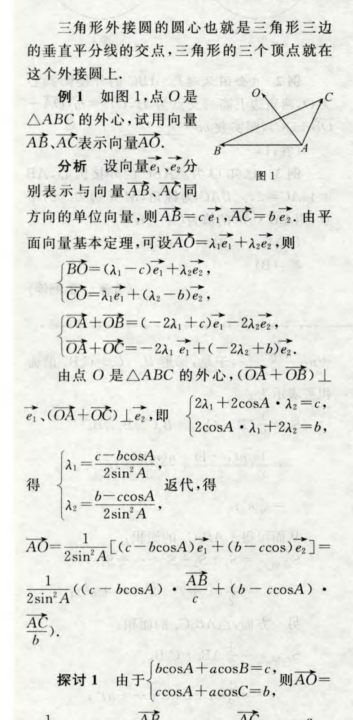 三角形外接圆的圆心也就是三角形三边
的垂直平分线的交点,三角形的三个顶点就在
这个外接圆上.
例1 如图1,点O是
△ABC的外心,试用向量
$\overrightarrow{AB}$、$\overrightarrow{AC}$表示向量$\overrightarrow{AO}$.
O
C
B
A
图1
分析 设向量$\overrightarrow{e_1}$、$\overrightarrow{e_2}$分
别表示与向量$\overrightarrow{AB}$、$\overrightarrow{AC}$同
方向的单位向量,则$\overrightarrow{AB}=c\overrightarrow{e_1}$,$\overrightarrow{AC}=b\overrightarrow{e_2}$.由平
面向量基本定理,可设$\overrightarrow{AO}=λ_1\overrightarrow{e_1}+λ_2\overrightarrow{e_2}$,则
$\overrightarrow{BO}=(λ_1-c)\overrightarrow{e_1}+λ_2\overrightarrow{e_2}$,
$\overrightarrow{CO}=λ_1\overrightarrow{e_1}+(λ_2-b)\overrightarrow{e_2}$,
$\overrightarrow{OA}+\overrightarrow{OB}=(-2λ_1+c)\overrightarrow{e_1}-2λ_2\overrightarrow{e_2}$,
$\overrightarrow{OA}+\overrightarrow{OC}=-2λ_1\overrightarrow{e_1}+(-2λ_2+b)\overrightarrow{e_2}$.
由点O是△ABC的外心,($\overrightarrow{OA}+\overrightarrow{OB}$)⊥
$\overrightarrow{e_1}$、($\overrightarrow{OA}+\overrightarrow{OC}$)⊥$\overrightarrow{e_2}$,即 $\begin{cases}2λ_1+2\cos A·λ_2=c,\\2\cos A·λ_1+2λ_2=b,\end{cases}$
得 $\begin{cases}λ_1=\frac{c-b\cos A}{2\sin^2A},\\λ_2=\frac{b-c\cos A}{2\sin^2A},\end{cases}$ 返代,得
$\overrightarrow{AO}=\frac{1}{2\sin^2A}[(c-b\cos A)\overrightarrow{e_1}+(b-c\cos)\overrightarrow{e_2}]=$
$\frac{1}{2\sin^2A}((c-b\cos A)·\frac{\overrightarrow{AB}}{c}+(b-c\cos A)·$
$\frac{\overrightarrow{AC}}{b})$.
探讨1 由于$\begin{cases}b\cos A+a\cos B=c,\\c\cos A+a\cos C=b,\end{cases}$则$\overrightarrow{AO}=$